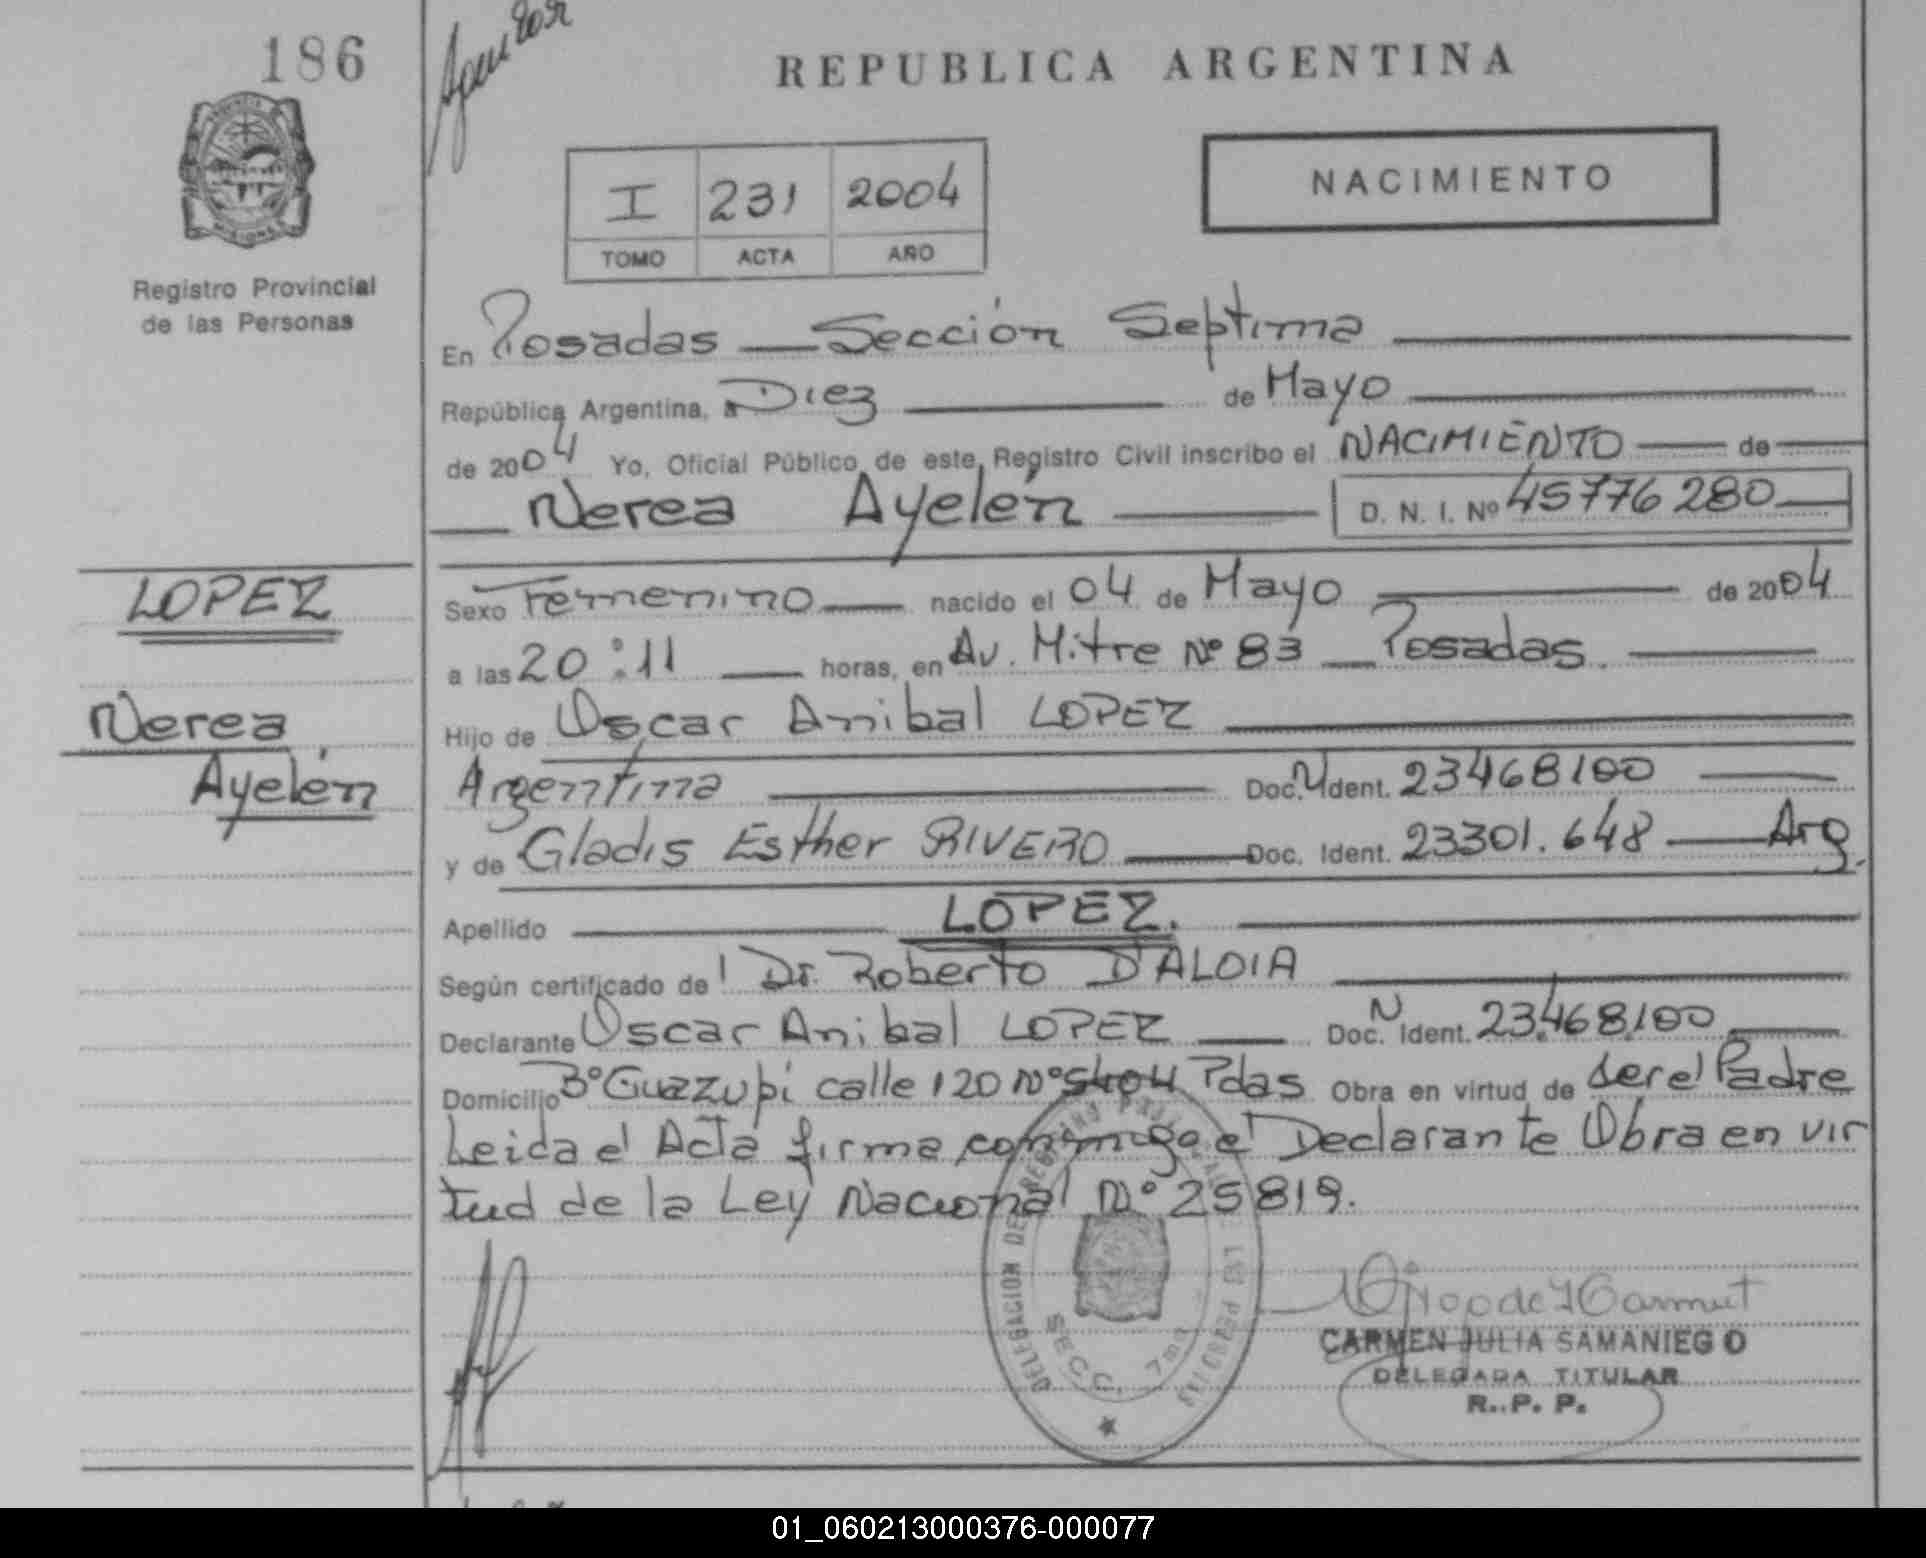 186
REPUBLICA ARGENTINA
I 231 2004
TOMO ACTA AÑO
NACIMIENTO
Registro Provincial
de las Personas
En Posadas — Sección Septima
República Argentina, a Diez de Mayo
de 2004 Yo, Oficial Público de este Registro Civil inscribo el NACIMIENTO de
Nerea Ayelén D. N. I. Nº 45776280
LOPEZ
Nerea
Ayelén
Sexo Femenino nacido el 04 de Mayo de 2004
a las 20:11 horas, en Av. Mitre Nº 83 — Posadas.
Hijo de Oscar Anibal LOPEZ
Argentina Doc. Ident. 23468100
y de Gladis Esther RIVERO Doc. Ident. 23301.648 — Arg.
Apellido LOPEZ.
Según certificado de Dr. Roberto D'ALOIA
Declarante Oscar Anibal LOPEZ Doc. N Ident. 23.468.100
Domicilio Bº Guazupi calle 120 Nº 5404 Pdas Obra en virtud de ser el Padre
Leida el Acta firma conmigo el Declarante Obra en vir
tud de la Ley Nacional Nº 25819.
DELEGACION DEL REGISTRO PROVINCIAL DE LAS PERSONAS
SECC. 7ma
CARMEN JULIA SAMANIEGO
DELEGADA TITULAR
R. P. P.
01_060213000376-000077